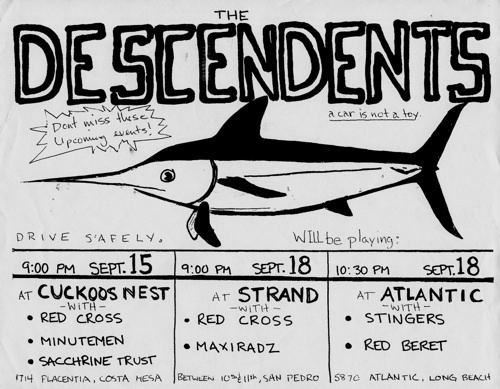 THE
DESCENDENTS
Dont miss these
Upcoming events!
a car is not a toy.
DRIVE S'AFELY.
WILL be playing:
9:00 PM SEPT. 15
AT CUCKOOS NEST
-WITH-
• RED CROSS
• MINUTEMEN
• SACCHRINE TRUST
1714 PLACENTIA, COSTA MESA
9:00 PM SEPT. 18
AT STRAND
-WITH-
• RED CROSS
• MAXIRADZ
BETWEEN 10th & 11th, SAN PEDRO
10:30 PM SEPT. 18
AT ATLANTIC
-WITH-
• STINGERS
• RED BERET
5870 ATLANTIC, LONG BEACH